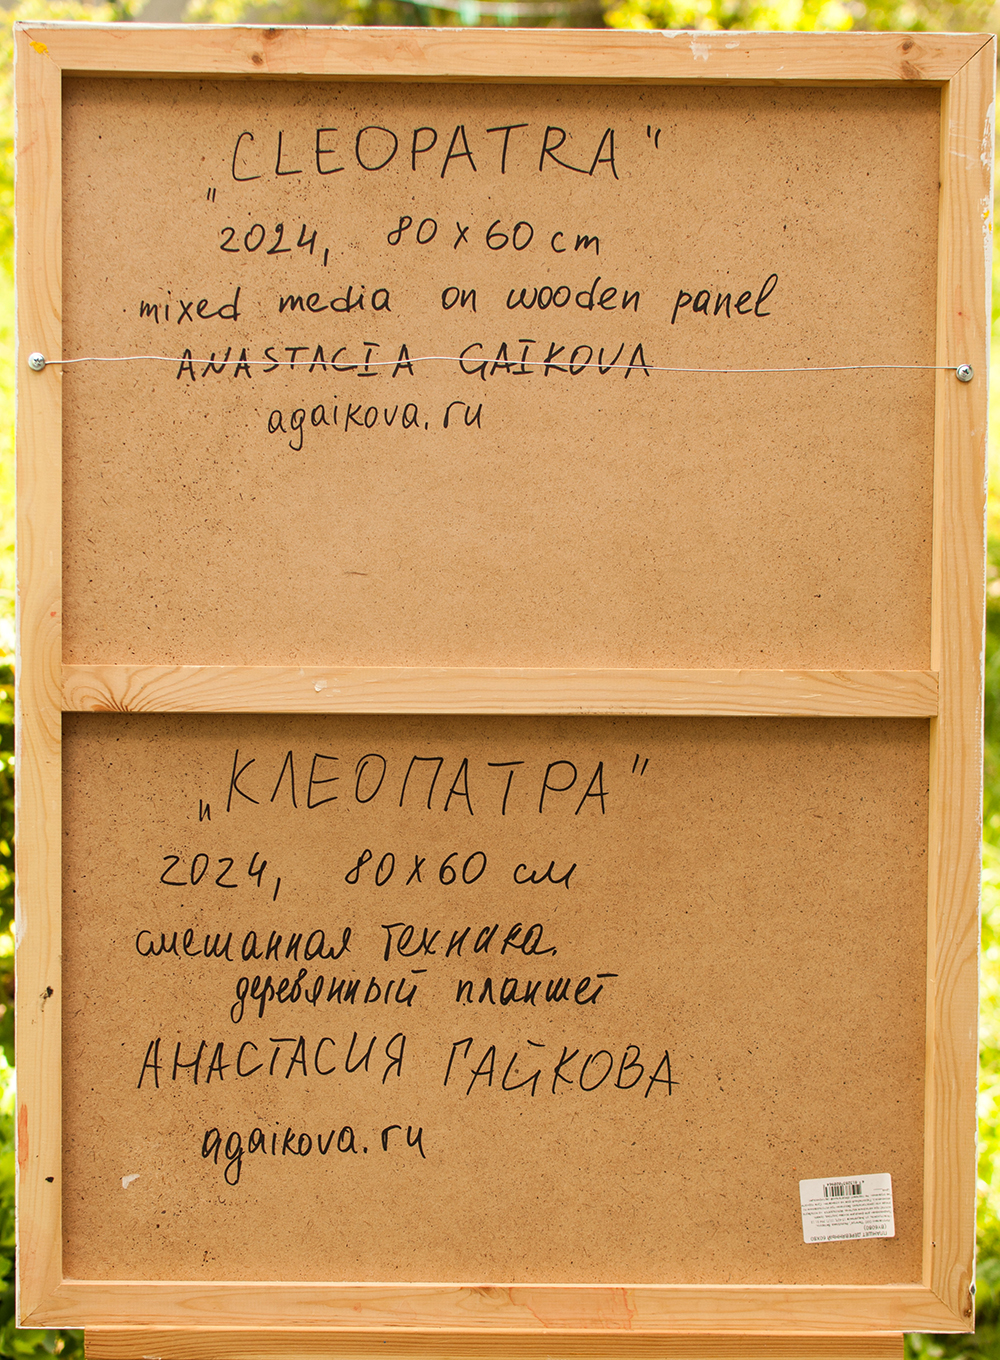 „CLEOPATRA“
2024, 80 x 60 cm
mixed media on wooden panel
ANASTACIA GAIKOVA
agaikova.ru
„КЛЕОПАТРА“
2024, 80 x 60 см
смешанная техника.
деревянный планшет
АНАСТАСИЯ ГАЙКОВА
agaikova.ru
ПЛАНШЕТ ДЕРЕВЯННЫЙ 60X80